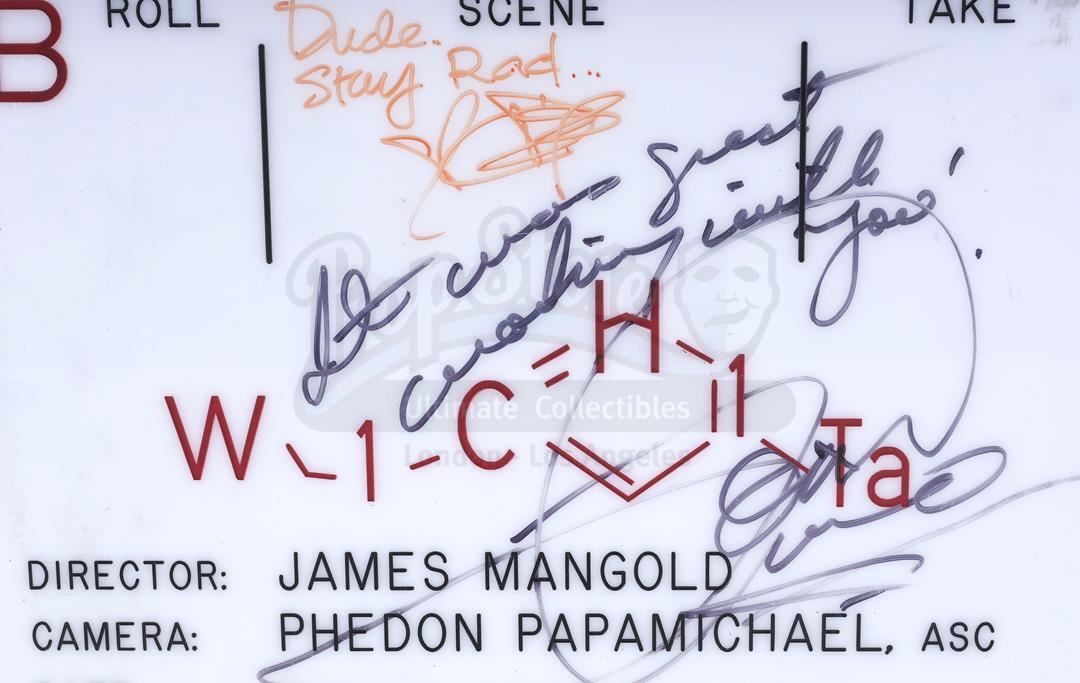 ROLL SCENE TAKE
B
Dude.
Stay Rad...
It was great
working with
you!
PropStore
Ultimate Collectibles
London - Los Angeles
W 1 C H 1 Ta
DIRECTOR: JAMES MANGOLD
CAMERA: PHEDON PAPAMICHAEL, ASC